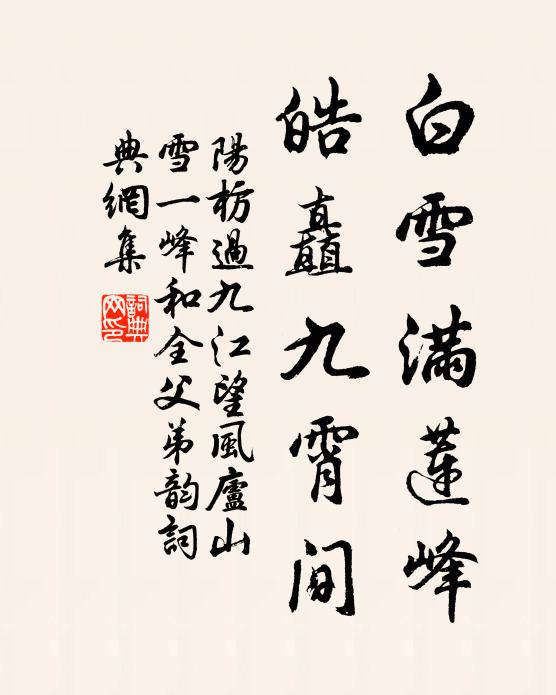 白雪滿蓮峰
皓矗九霄間
陽枋過九江望風廬山
雪一峰和全父弟韵詞
典網集
詞典
网印